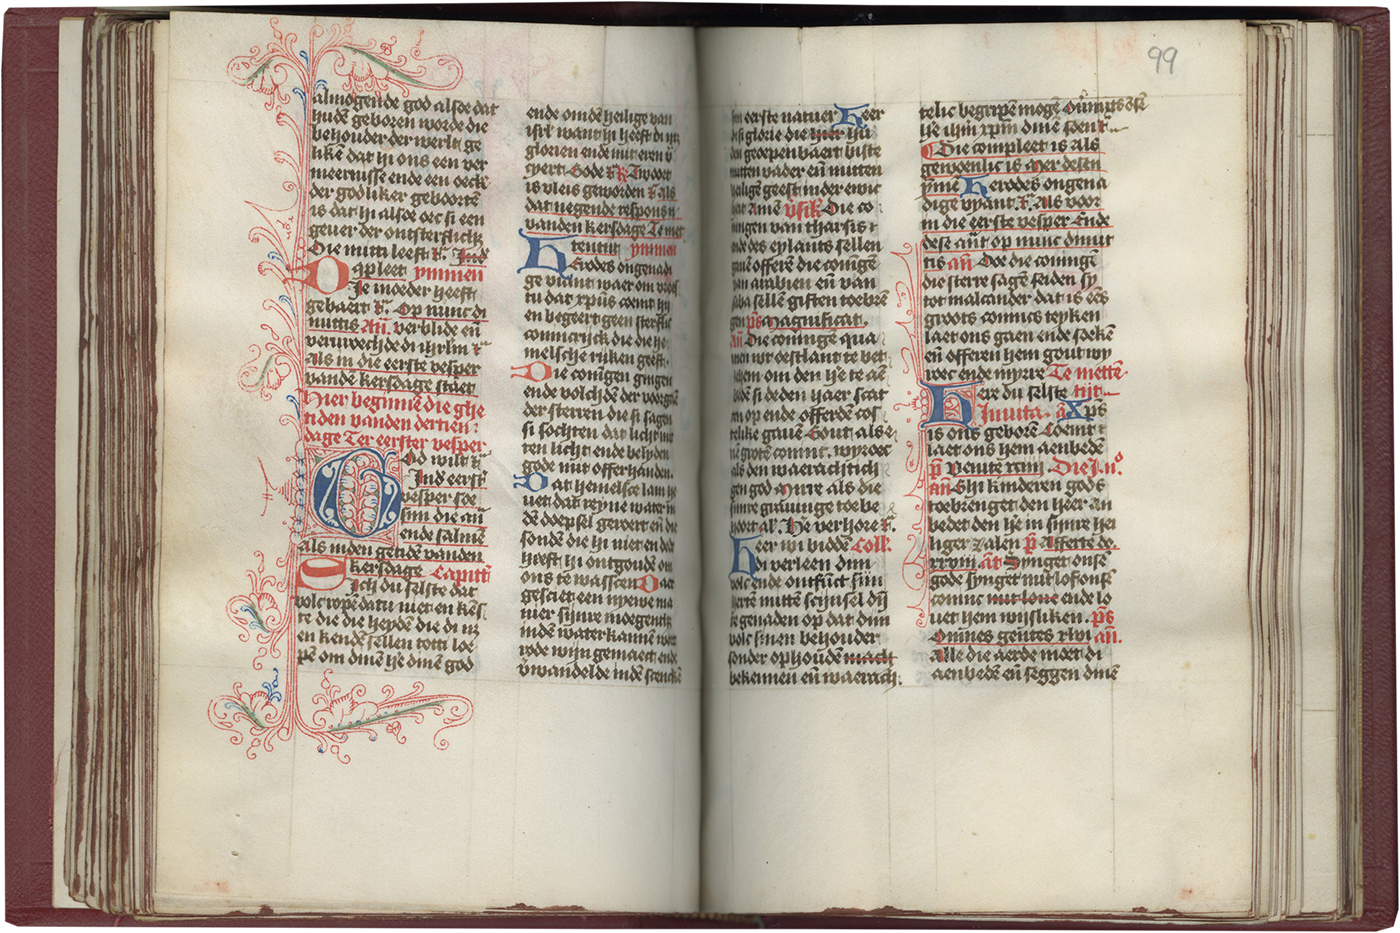 almogende god alsoe dat
hudē geboren worde die
behouder der werlt ge
likē dat hi ons een ver
meernisse ende een oeck
der godliker geboortē
is dat hi alsoe oec si een
geuer der onsterflich
Die mitti leeft \&c. Ind
cōpleet ymmen
Ie moeder heeft
gebaert \&c. Op nunc di
mittis Añ. verblide eñ
vervroech di ihrlm \&c
als in die eerste vesper
vandē kersdage staet
Hier beginnē die ghe
tiden vanden dertien
dage Ter eerster vesper
God wilt \&c
Ind eerst
vesper soe
sim die añ
ende salmē
als inden getidē vanden
kersdage Capitt
Ich du selste dat
volc roepē datu niet en kēs
te die die heydē die di n
en kendē sellen totti loe
pē om dinē he dinē god
ende omdē heilige van
israel want hi heeft di
glorien ende mit eren
Gode R Twoort
is vleis geworden \&c Als
dat negende respons
vanden kersdage Te met
tentijt ymmen
Herodes ongenadi
ge viant waer om vrees
tu dat xpus coemt hi
en begeert geen sterflic
conincrijck die die he
melsche riken geeft
Die conīgen gingen
ende volchdē der voorgaē
der sterren die si sagen
si sochten dat licht mit
ten licht ende belyden
gode mit offerhanden
Dat hemelsce lam h
uet dat reyne water in
dē doepsel geroert eñ die
sondē die hi niet en dat
heeft hi ontgoudē om
ons te wasscen Daer
gesciet een nyewe ma
nier sijnre moegentg
indē water kannen wor
rode wijn gemaect ende
v̄wandelde indē
sijn eerste natuer Heer
di si glorie die hier hu
den geoepenbaert biste
mitten vader eñ mitten
heilige geest in der ewic
heit Amē v̄sik Die co
ningen van tharsis \&
ende des eylants sellen
gauē offerē die conīgē
van arabien eñ van
saba sellē giften toebrē
gen ps Magnificat.
añ Die coningē qua
men wt oestlant te bet
lehem om den he te aē
bedē si deden haer scat
ten op ende offerdē cos
telike gauē Gout alse
nē grotē connic. wyroec
als den waerachtich
gen god Mirre als die
sijnre grauinge toe be
hoort al'. He verhore \&c.
Heer wi biddē Coll.
di verleen dim
volc ende ontfūct sijn
hertē mittē scijnsel dij
re genaden op dat dim
volc sinen behouder
sonder ophoudē mach
bekennen eñ waerach.
telic begripē mogē Oūmits ōsē
he ihm xpm dinē soen \&c
Die compleet is als
gewoenlic is Mer desen
ymē Herodes ongena
dige vyant \&c. Als voor
in die eerste vesper Ende
dese añt op nunc dimit
tis añ Doe die coningē
die sterre sagē seiden sy
tot malcander dat is ees
groots connics teyken
laet ons gaen ende soekē
eñ offeren hem gout wy
roec ende myrre Te mettē
Here du selste tijt
Inuita. añ Xps
is ons geborē Coemt \&
laet ons hem aenbedē
ps Venite xciiij. Die J. nº
añ Ghi kinderen gods
toebrenget den heer an
bedet den he in sijnre hei
liger zalen ps Afferte do.
xxviij. añ Synget onsē
gode synget mit lof onsē
connic mit loue ende lo
uet hem wijsliken. ps
Omnes gentes xlvj añ.
Alle die aerde moet di
aenbedē eñ seggen dinē
99